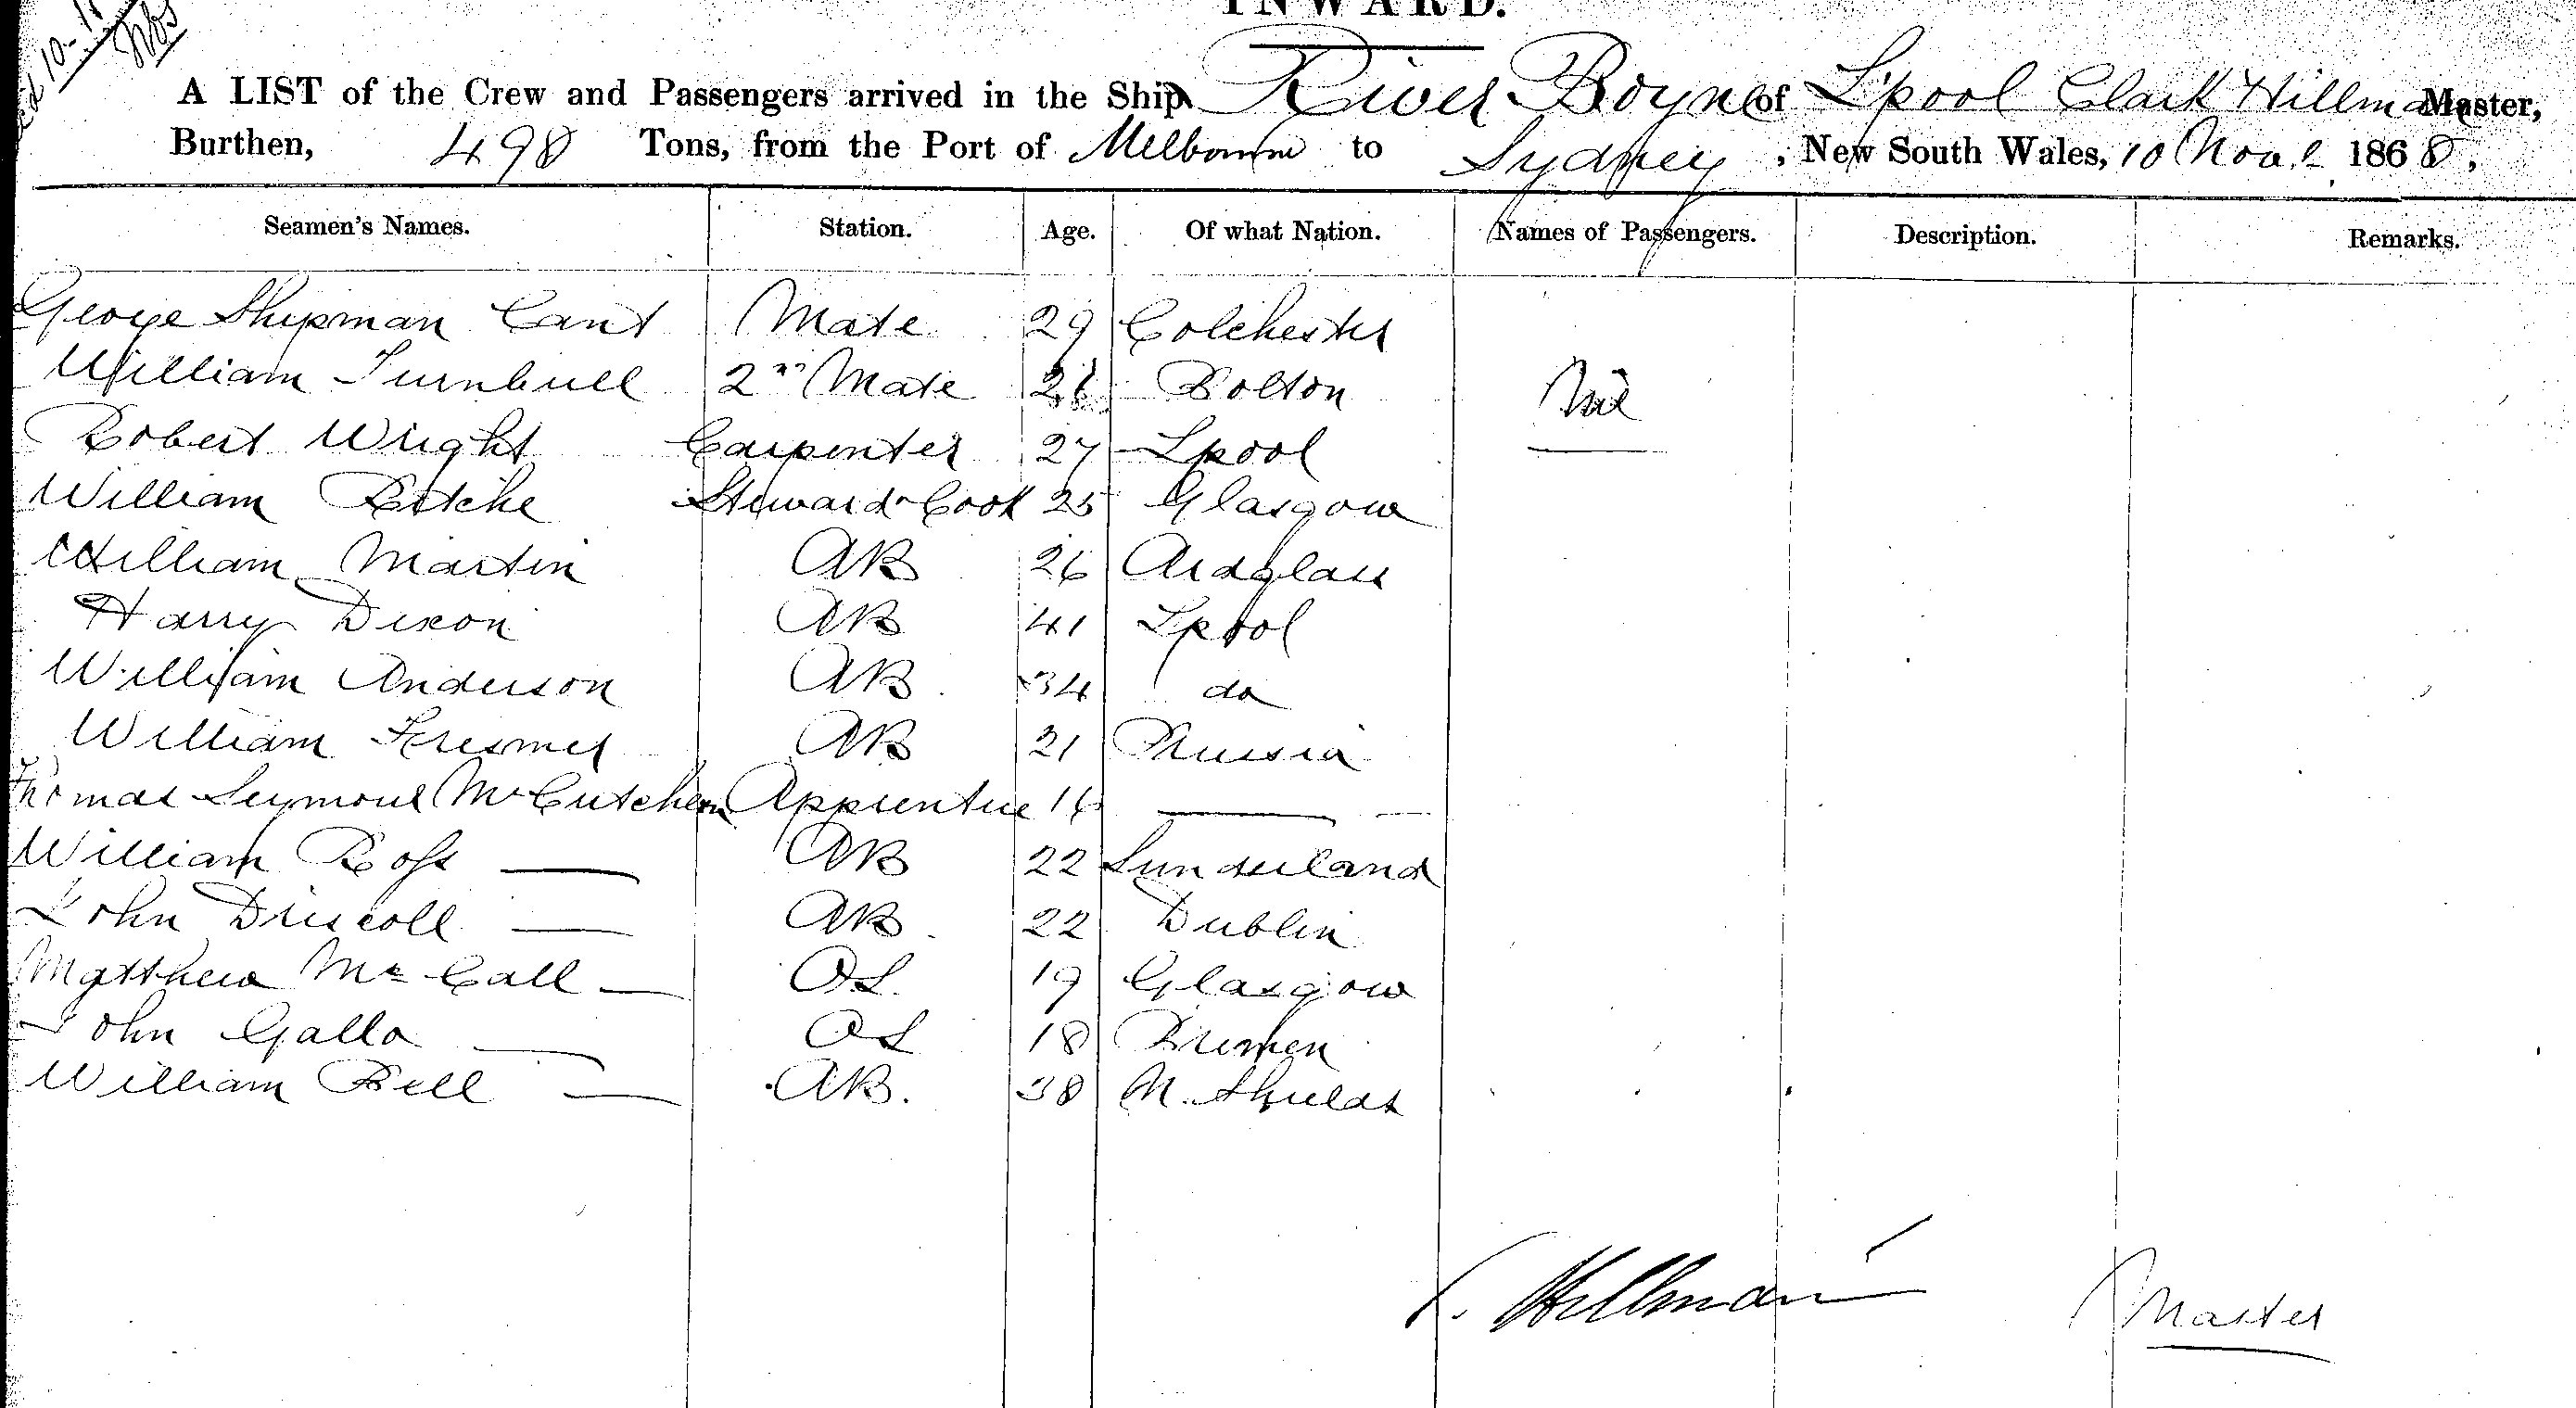 INWARD.
A LIST of the Crew and Passengers arrived in the Ship River Boyne of L'pool Clark Hillman Master,
Burthen, 498 Tons, from the Port of Melbourne to Sydney, New South Wales, 10 Nov. 1868,
Seamen's Names. Station. Age. Of what Nation. Names of Passengers. Description. Remarks.
George Shipman Cant Mate 29 Colchester
William Turnbull 2nd Mate Bolton Nil
Robert Wright Carpenter 27 Lpool
William Steward & Cook 25 Glasgow
William Martin AB 26 Ardglass
Harry Dixon AB 41 Lpool
William Anderson AB 34 do
William AB 21
Thomas Seymour McCutcheon Apprentice 16
William Ross AB 22 Sunderland
John Driscoll AB 22 Dublin
Matthew McCall OS 19 Glasgow
John Gallo OS 18 Bremen
William Bell AB. 38 N. Shields
Hillman Master